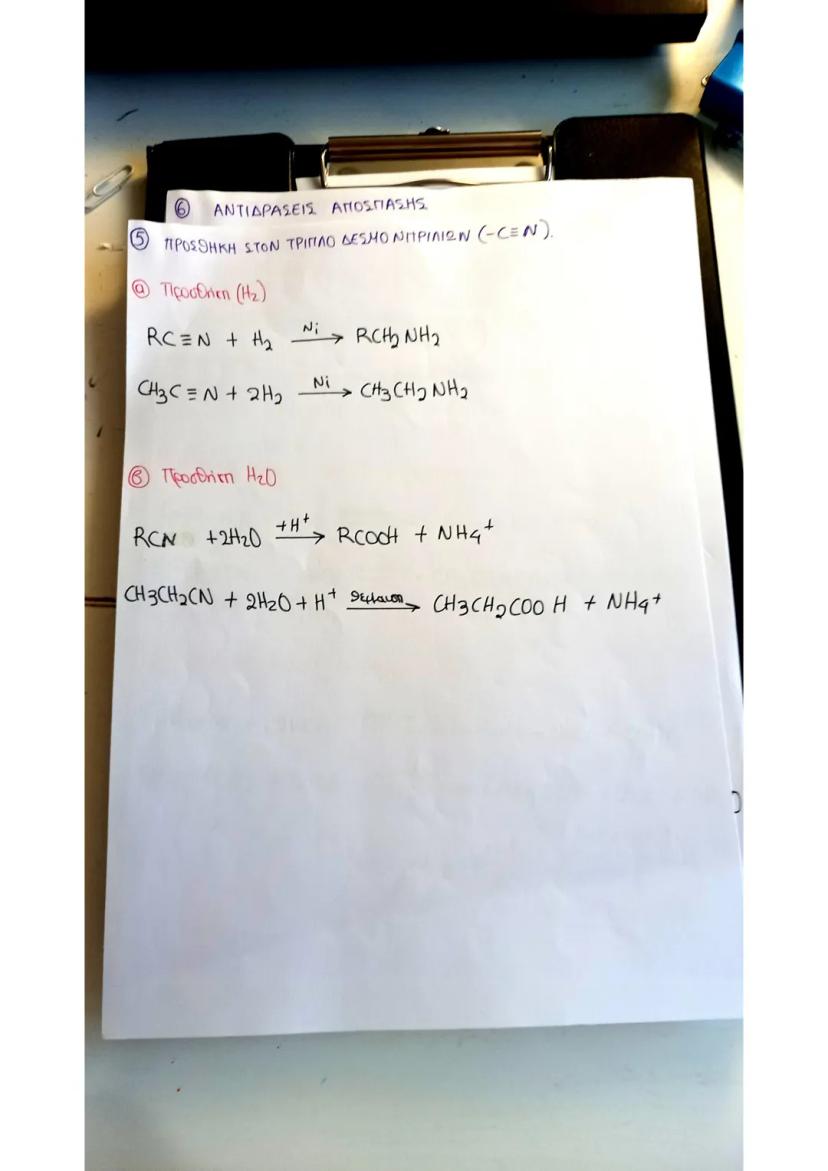 ⑥ ΑΝΤΙΔΡΑΣΕΙΣ ΑΠΟΣΠΑΣΗΣ
⑤ ΠΡΟΣΘΗΚΗ ΣΤΟΝ ΤΡΙΠΛΟ ΔΕΣΜΟ ΝΙΤΡΙΛΙΩΝ (-C≡N).
ⓐ Προσθήκη (H₂)
RC≡N + H₂ —Ni→ RCH₂NH₂
CH₃C≡N + 2H₂ —Ni→ CH₃CH₂NH₂
ⓑ Προσθήκη H₂O
RCN +2H₂O —+H⁺→ RCOOH + NH₄⁺
CH₃CH₂CN + 2H₂O + H⁺ —θέρμανση→ CH₃CH₂COOH + NH₄⁺